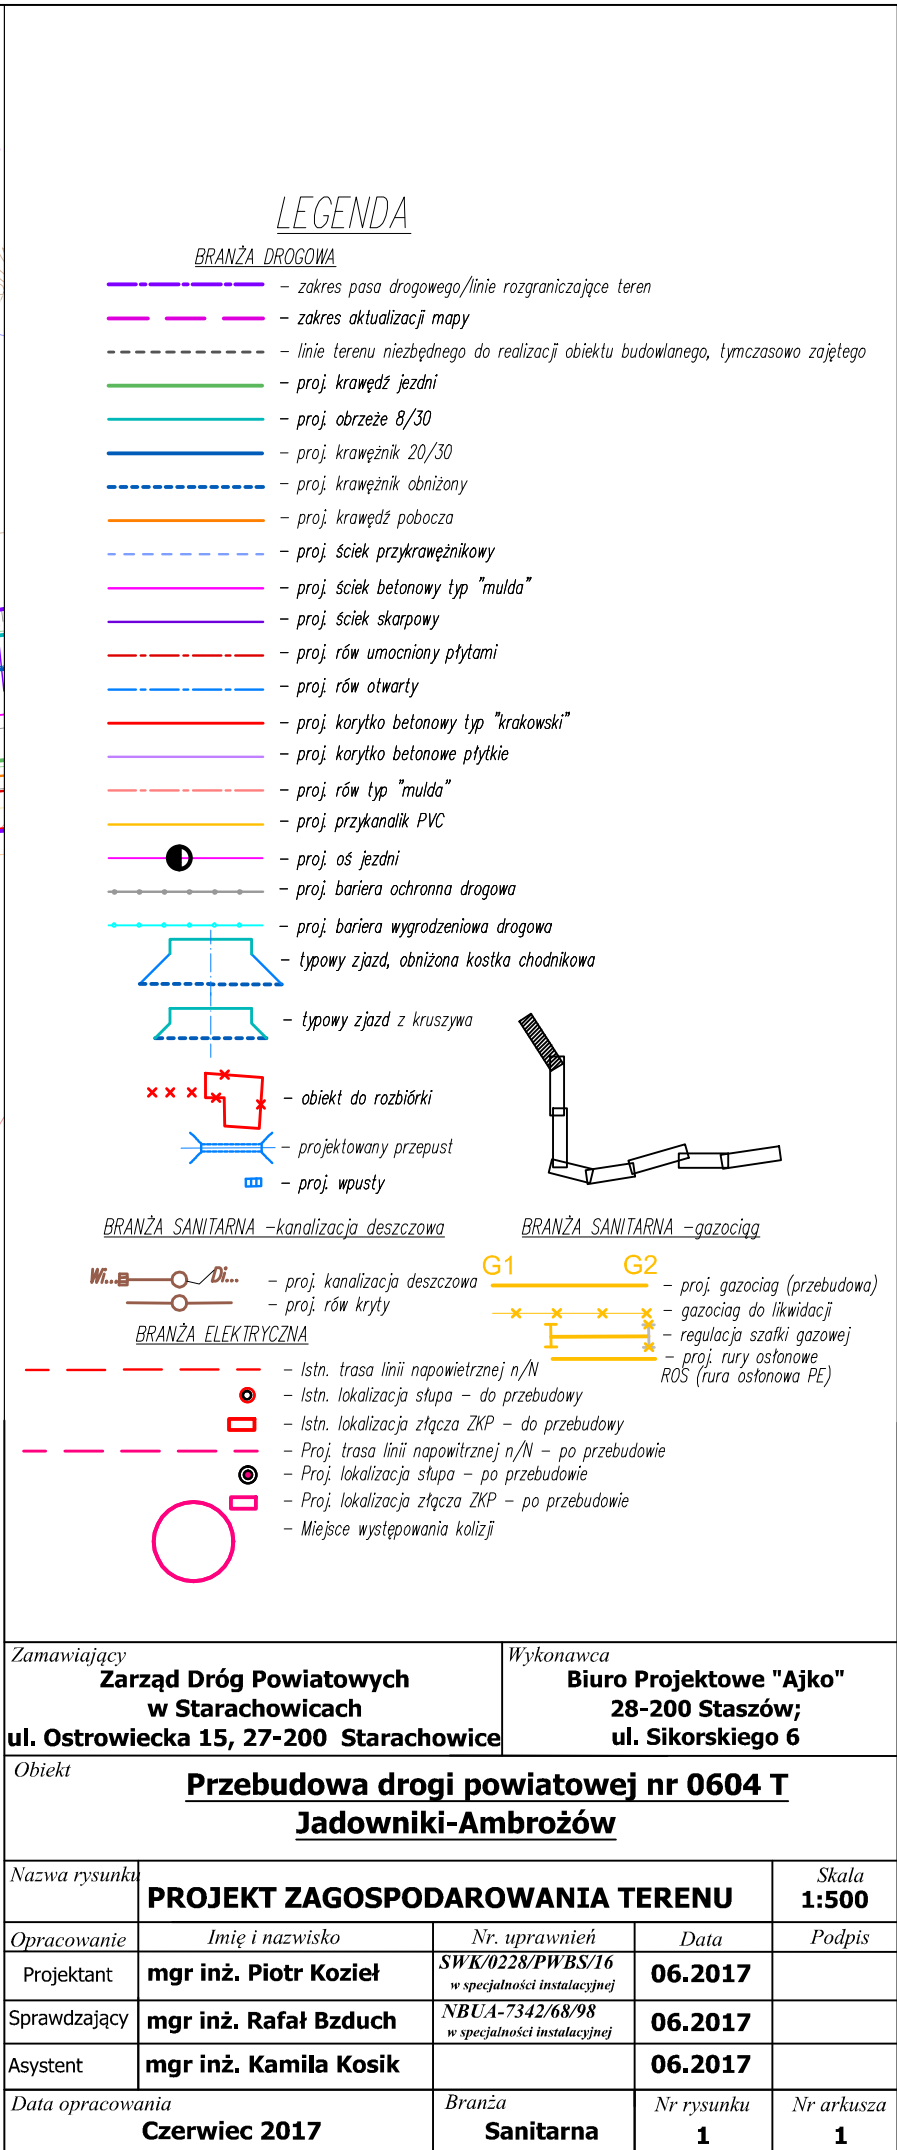 LEGENDA
BRANŻA DROGOWA
- zakres pasa drogowego/linie rozgraniczające teren
- zakres aktualizacji mapy
- linie terenu niezbędnego do realizacji obiektu budowlanego, tymczasowo zajętego
- proj. krawędź jezdni
- proj. obrzeże 8/30
- proj. krawężnik 20/30
- proj. krawężnik obniżony
- proj. krawędź pobocza
- proj. ściek przykrawężnikowy
- proj. ściek betonowy typ "mulda"
- proj. ściek skarpowy
- proj. rów umocniony płytami
- proj. rów otwarty
- proj. korytko betonowy typ "krakowski"
- proj. korytko betonowe płytkie
- proj. rów typ "mulda"
- proj. przykanalik PVC
- proj. oś jezdni
- proj. bariera ochronna drogowa
- proj. bariera wygrodzeniowa drogowa
- typowy zjazd, obniżona kostka chodnikowa
- typowy zjazd z kruszywa
- obiekt do rozbiórki
- projektowany przepust
- proj. wpusty
BRANŻA SANITARNA -kanalizacja deszczowa
Wi... Di...
- proj. kanalizacja deszczowa
- proj. rów kryty
BRANŻA SANITARNA -gazociąg
G1 G2
- proj. gazociag (przebudowa)
- gazociag do likwidacji
- regulacja szafki gazowej
- proj. rury osłonowe
ROS (rura osłonowa PE)
BRANŻA ELEKTRYCZNA
- Istn. trasa linii napowietrznej n/N
- Istn. lokalizacja słupa - do przebudowy
- Istn. lokalizacja złącza ZKP - do przebudowy
- Proj. trasa linii napowitrznej n/N - po przebudowie
- Proj. lokalizacja słupa - po przebudowie
- Proj. lokalizacja złącza ZKP - po przebudowie
- Miejsce występowania kolizji
Zamawiający
Zarząd Dróg Powiatowych
w Starachowicach
ul. Ostrowiecka 15, 27-200 Starachowice
Wykonawca
Biuro Projektowe "Ajko"
28-200 Staszów;
ul. Sikorskiego 6
Obiekt
Przebudowa drogi powiatowej nr 0604 T
Jadowniki-Ambrożów
Nazwa rysunku
PROJEKT ZAGOSPODAROWANIA TERENU
Skala
1:500
Opracowanie Imię i nazwisko Nr. uprawnień Data Podpis
Projektant mgr inż. Piotr Kozieł SWK/0228/PWBS/16 06.2017
w specjalności instalacyjnej
Sprawdzający mgr inż. Rafał Bzduch NBUA-7342/68/98 06.2017
w specjalności instalacyjnej
Asystent mgr inż. Kamila Kosik 06.2017
Data opracowania Branża Nr rysunku Nr arkusza
Czerwiec 2017 Sanitarna 1 1